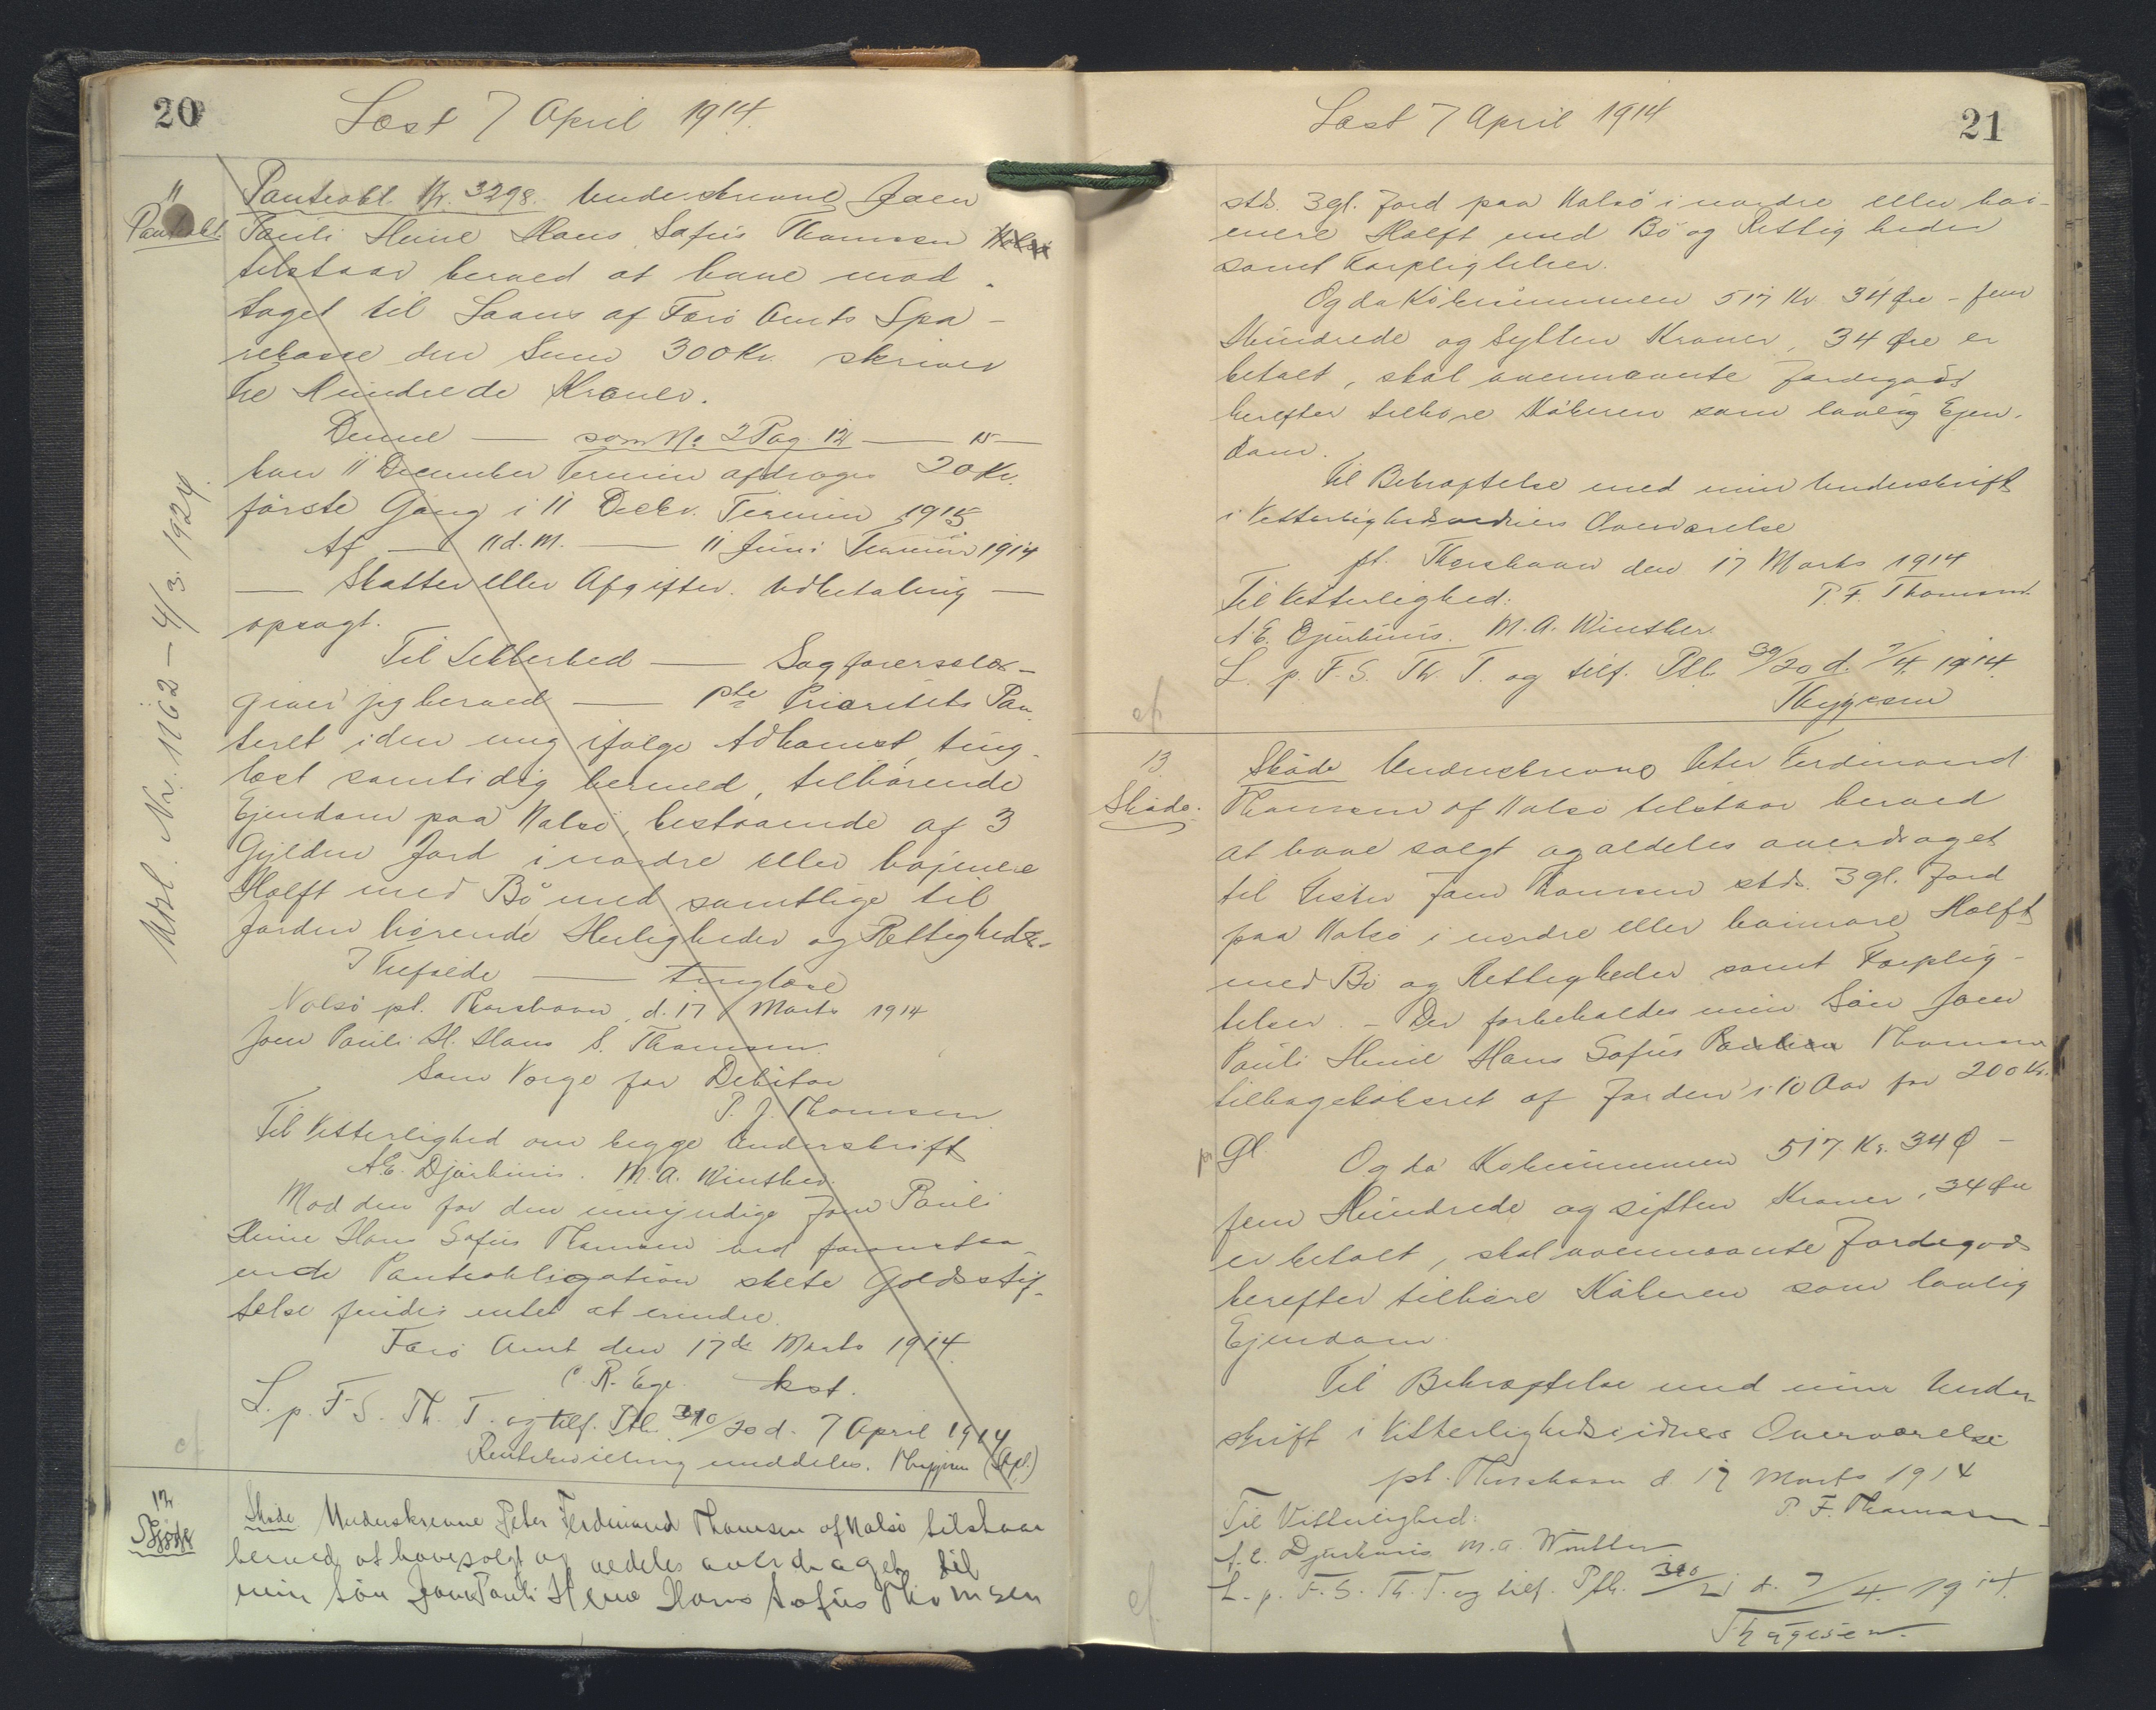 20
Læst 7 April 1914.
11
Pantobl.
Pantobl. Nr. 3298. Underskrevne Joen
Pauli Heine Hans Sofus Thomsen
tilstaar herved at have mod-
taget til Laans af Færø Amts Spa-
rekasse den Sum 300 Kr. skriver
tre Hundrede Kroner.
Denne — som No 2 Pag. 12 — 15 —
hver 11 December Termin afdrages 20 Kr.
første Gang i 11 Decbr. Termin 1915
Af — 11 d. M. — 11 Juni Termin 1914
— Skatter eller Afgifter. Udbetaling —
opsagt.
Til Sikkerhed — Sagførersalær —
giver jeg herved — 1ste Prioritets Pan-
teret i den mig ifølge Adkomst, ting-
læst samtidig hermed, tilhørende
Ejendom paa Nolsø, bestaaende af 3
Gylden Jord i nordre eller hojnere
Halft med Bø med samtlige til
Jorden hørende Herligheder og Rettigheder.
I Tilfælde — tinglæse
Nolsø pt. Thorshavn, d. 17 Marts 1914
Joen Pauli H. Hans S. Thomsen.
Som Værge for Debitor
P. F. Thomsen
Til Vitterlighed om begge Underskrift
A. E. Djurhuus. M. A. Winther.
Mod den for den umyndige Joen Pauli
Heine Hans Sofus Thomsen ved foranstaa-
ende Panteobligation skete Gældsstif-
telse findes intet at erindre.
Færø Amt den 17de Marts 1914.
C. R. Ege. kst.
L. p. F. S. Th. T. og tilf. Ptb. 390/20 d. 7 April 1914
Rentebevilling meddeles. Thygesen (Spl.)
Utsl. Nr. 1162 – 4/3. 1924.
12
Skjøde
Skøde Underskrevne Peter Ferdinand Thomsen af Nolsø tilstaar
herved at have solgt og aldeles overdraget til
min Søn Joen Pauli Heine Hans Sofus Thomsen
21
Læst 7 April 1914
str. 3 gl. Jord paa Nolsø i nordre eller hoi-
nere Halft med Bø og Rettigheder
samt Forpligtelser.
Og da Købesummen 517 Kr. 34 Øre – fem
Hundrede og sytten Kroner, 34 Øre er
betalt, skal ovennævnte Jordegods
herefter tilhøre Køberen som lovlig Ejen-
dom.
Til Bekræftelse med min Underskrift
i Vitterlighedsvidners Overværelse
pt. Thorshavn den 17 Marts 1914
Til Vitterlighed: P. F. Thomsen
A. E. Djurhuus. M. A. Winther.
L. p. F. S. Th. T. og tilf. Ptb. 390/20 d. 7/4 1914.
Thygesen
13
Skøde.
Skøde Underskrevne Peter Ferdinand
Thomsen af Nolsø tilstaar herved
at have solgt og aldeles overdraget
til Joen Thomsen str. 3 gl. Jord
paa Nolsø i nordre eller hoinore Halft
med Bø og Rettigheder samt Forplig-
telser. – Der forbeholdes min Søn Joen
Pauli Heine Hans Sofus Thomsen
tilbagekøbsret af Jorden i 10 Aar for 200 Kr.
pr Gl. Og da Købesummen 517 Kr. 34 Ø –
fem Hundrede og sytten Kroner, 34 Øre
er betalt, skal ovennævnte Jordegods
herefter tilhøre Køberen som lovlig
Ejendom.
Til Bekræftelse med min Under-
skrift i Vitterlighedsvidners Overværelse
pt. Thorshavn d. 17 Marts 1914
Til Vitterlighed: P. F. Thomsen
A. E. Djurhuus M. A. Winther
L. p. F. S. Th. T. og tilf. Ptb. 390/21 d. 7/4. 1914.
Thygesen.